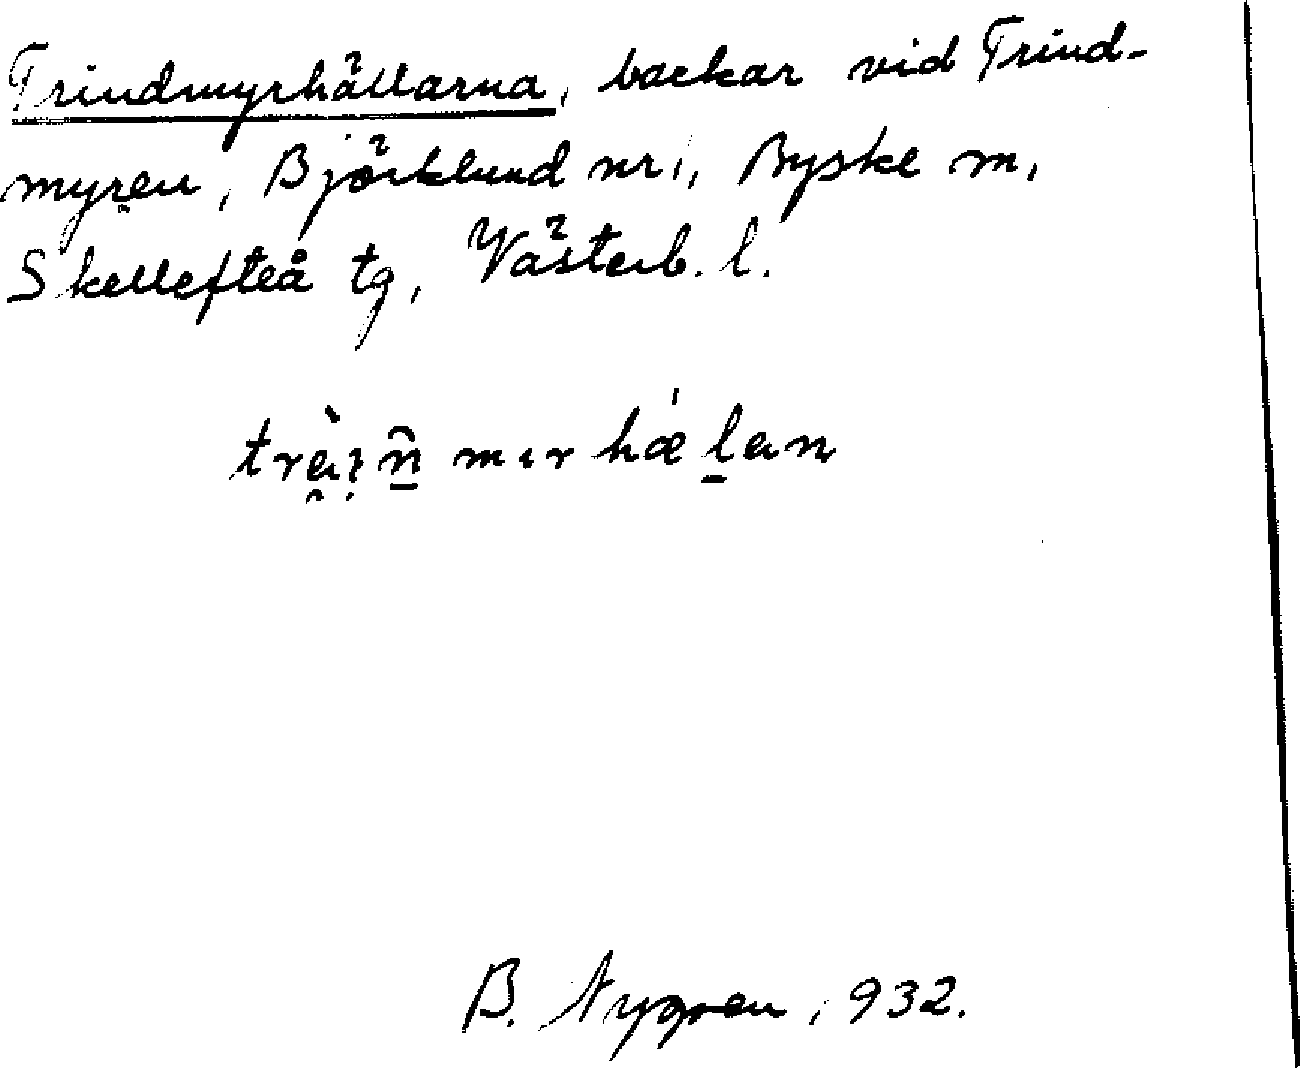 Trindmyrhällarna, backar vid Trind-
myren, Björklund nr 1, Byske sn,
Skellefteå tg, Västerb. l.
mır hæ̍l̠an
B. Nygren, 1932.